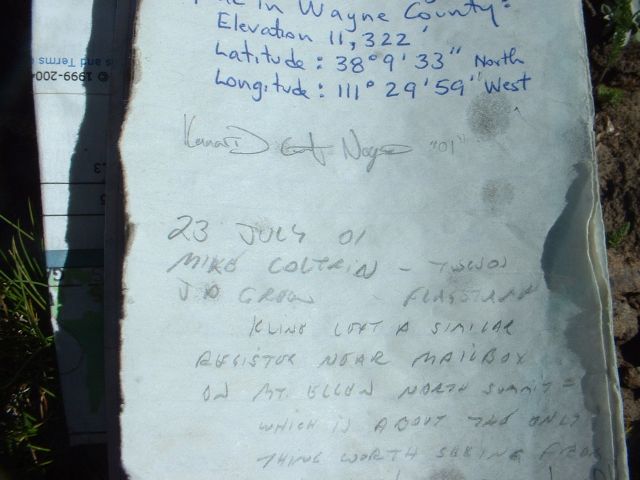 in Wayne County:
Elevation 11,322'
Latitude: 38° 9' 33" North
Longitude: 111° 29' 59" West
"01"
23 JULY 01
MIKE COLTRIN -
J D GREEN FLAGSTAFF
KLINE LEFT A SIMILAR
REGISTER NEAR MAILBOX
ON MT. ELLEN NORTH SUMMIT =
WHICH IS ABOUT THE ONLY
THING WORTH SEEING FROM
© 1999-200
s and Terms